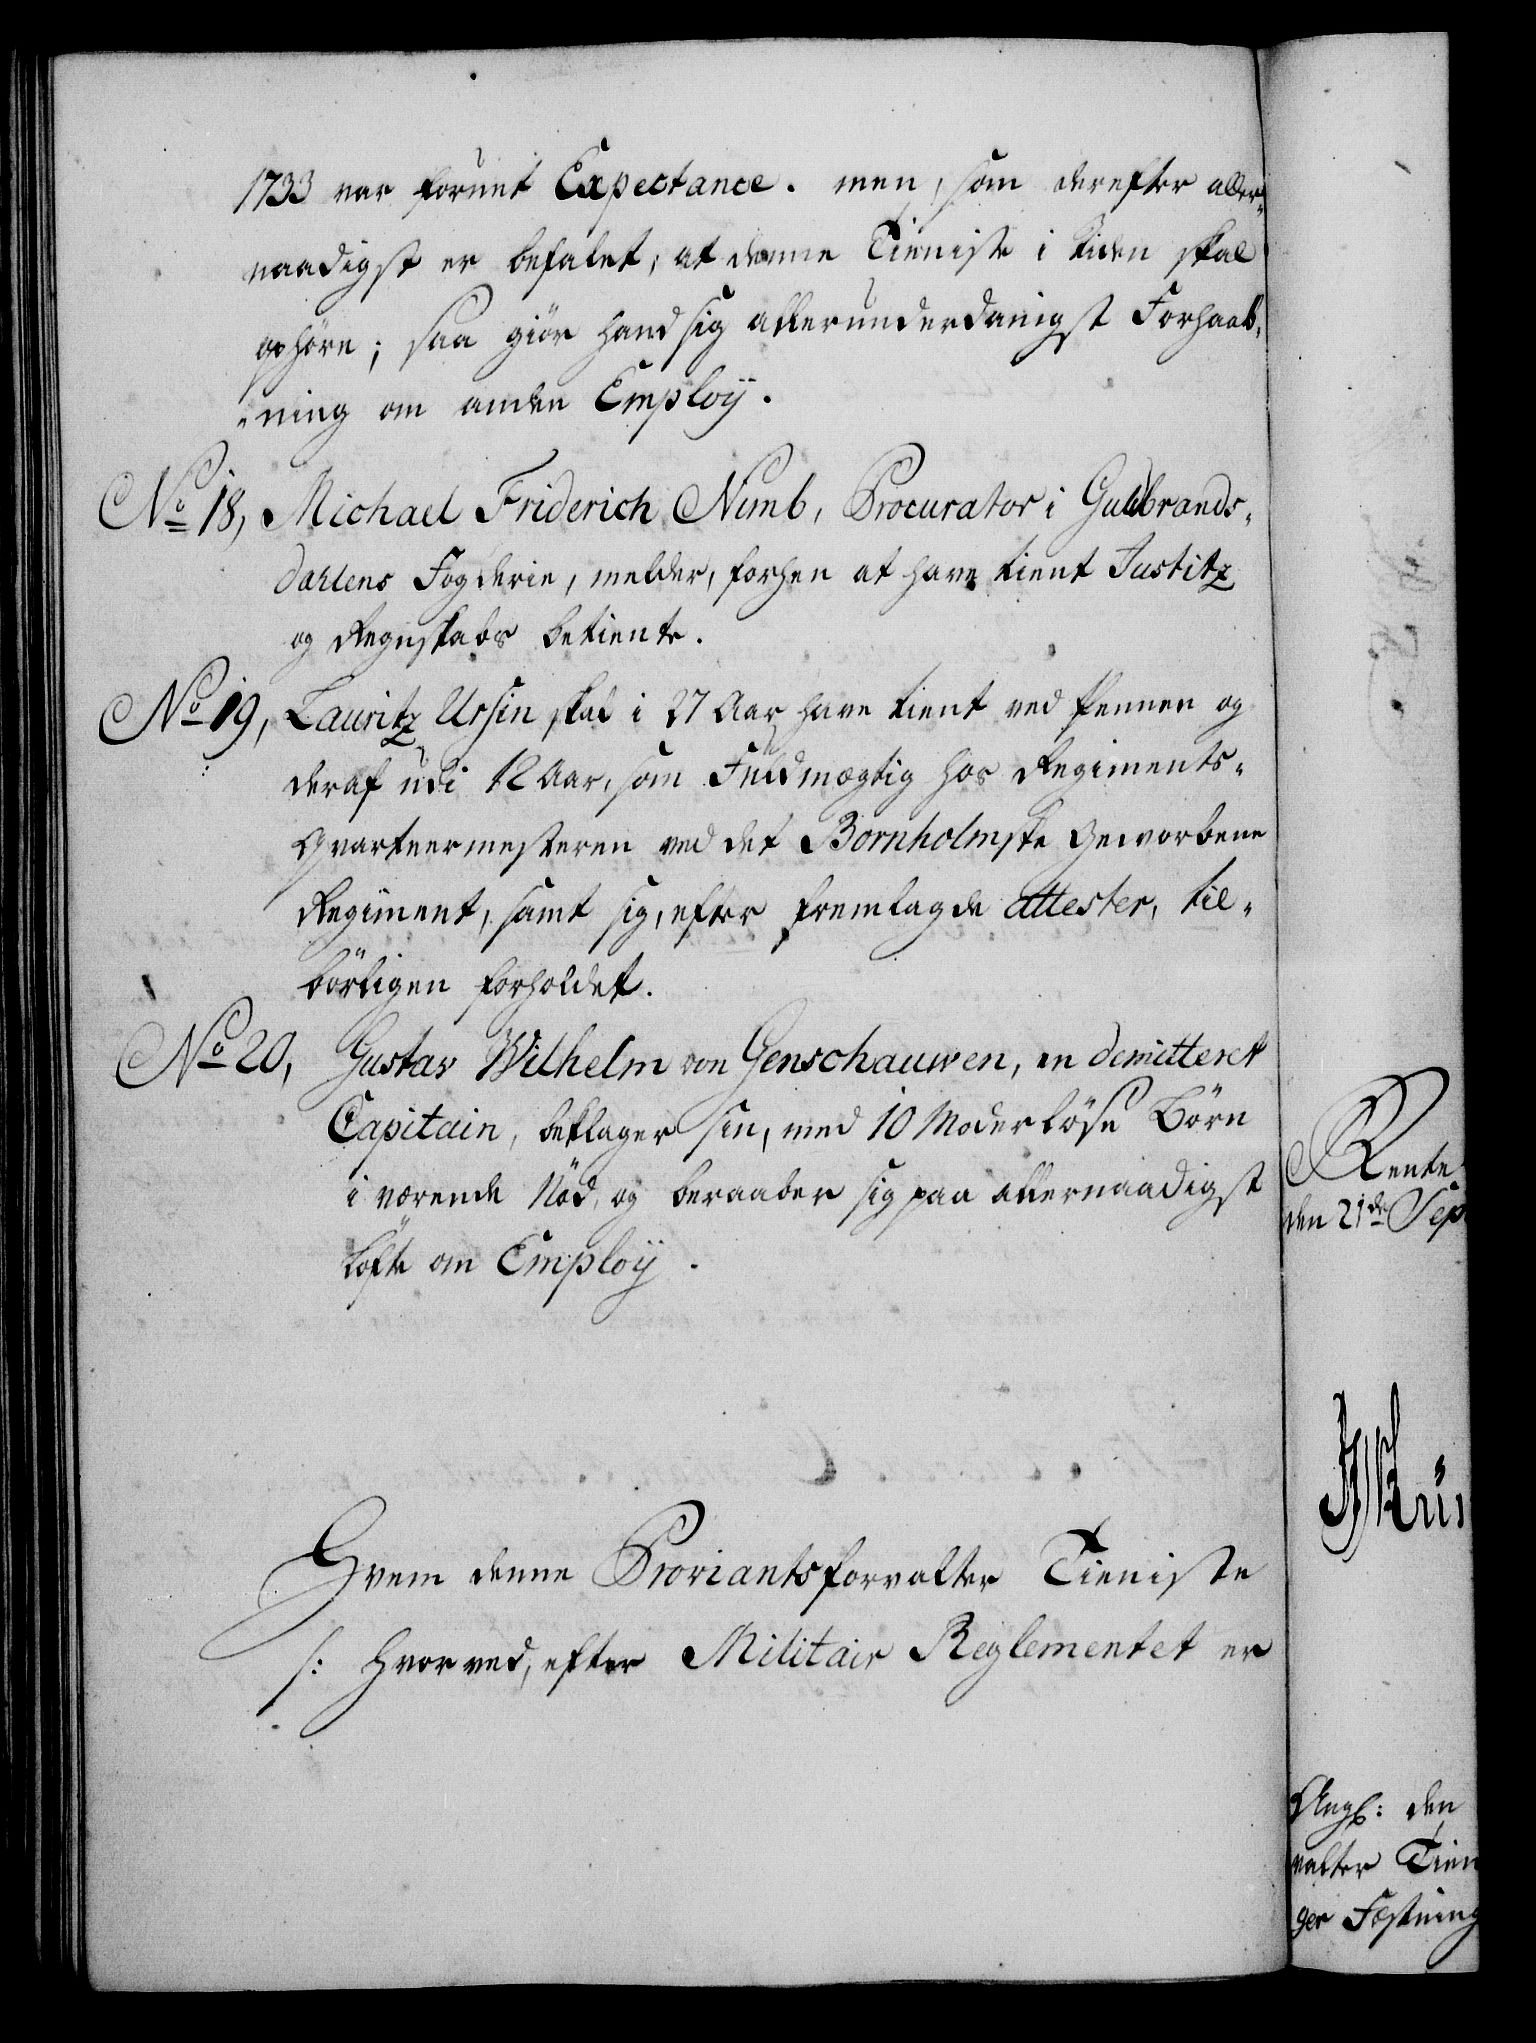 1733 var forunt Expectance. men, som derefter aller„
naadigst er befalet, at denne Tieniste i tiden skal
ophöre; saa giör hand sig allerunderdanigst Forhaab„
„ning om anden Employ.
No 18, Michael Friderich Nimb, Procurator i Guldbrands„
dahlens Fogderie, melder, forhen at have tient Justitz
og Regnskabs betiente.
No 19, Lauritz Ursin skal i 27 Aar have tient ved Pennen og
deraf udi 12 Aar, som Fuldmægtig hos Regiments„
Qvarteermesteren ved det Bornholmske Geworbene
Regiment, samt sig, efter fremlagde attester, til„
börligen forholdet.
No 20, Gustav Wilhelm von Genschauwen, en demitteret
Capitain, beklager sin, med 10 Moderlöse Börn
i værende Nöd, og beraaber sig paa allernaadigst
löfte om Employ.
Hvem denne Proviantsforvalter Tieniste
/: hvorved, efter Militair Reglementet er
Rente
den 21de Sep
den
valter Tien
ger Fæstning